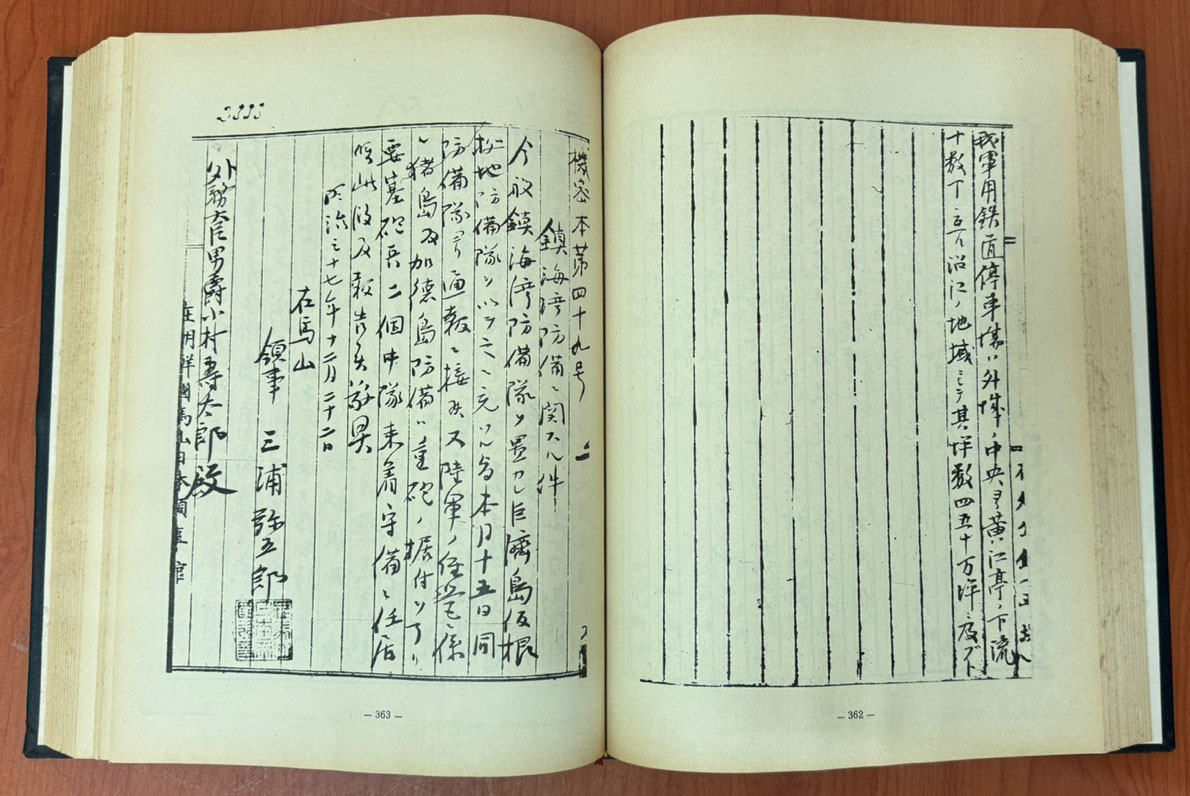 我軍用鉄道停車場ハ外城ノ中央ヨリ黄江亭ノ下流
十数丁ニ亘ル沿江ノ地域ニシテ其坪数四五十万坪ニ及ブト
― 362 ―
機密本第四十九号
鎮海湾防備ニ関スル件
今般鎮海湾防備隊ヲ置カレ巨済島仮根
拠地防備隊ヲ以テ之ニ充ツル旨本月十五日同
防備隊ヨリ通報ニ接シ又陸軍ノ経営ニ係
ル猪島及加徳島防備ハ重砲ノ据付ヲ了リ
要塞砲兵二個中隊来着守備ニ任居
候此段及報告候敬具
明治三十七年十二月二十二日
在馬山
領事 三浦弥五郎
外務大臣男爵小村寿太郎殿
在朝鮮國馬山日本領事館
― 363 ―